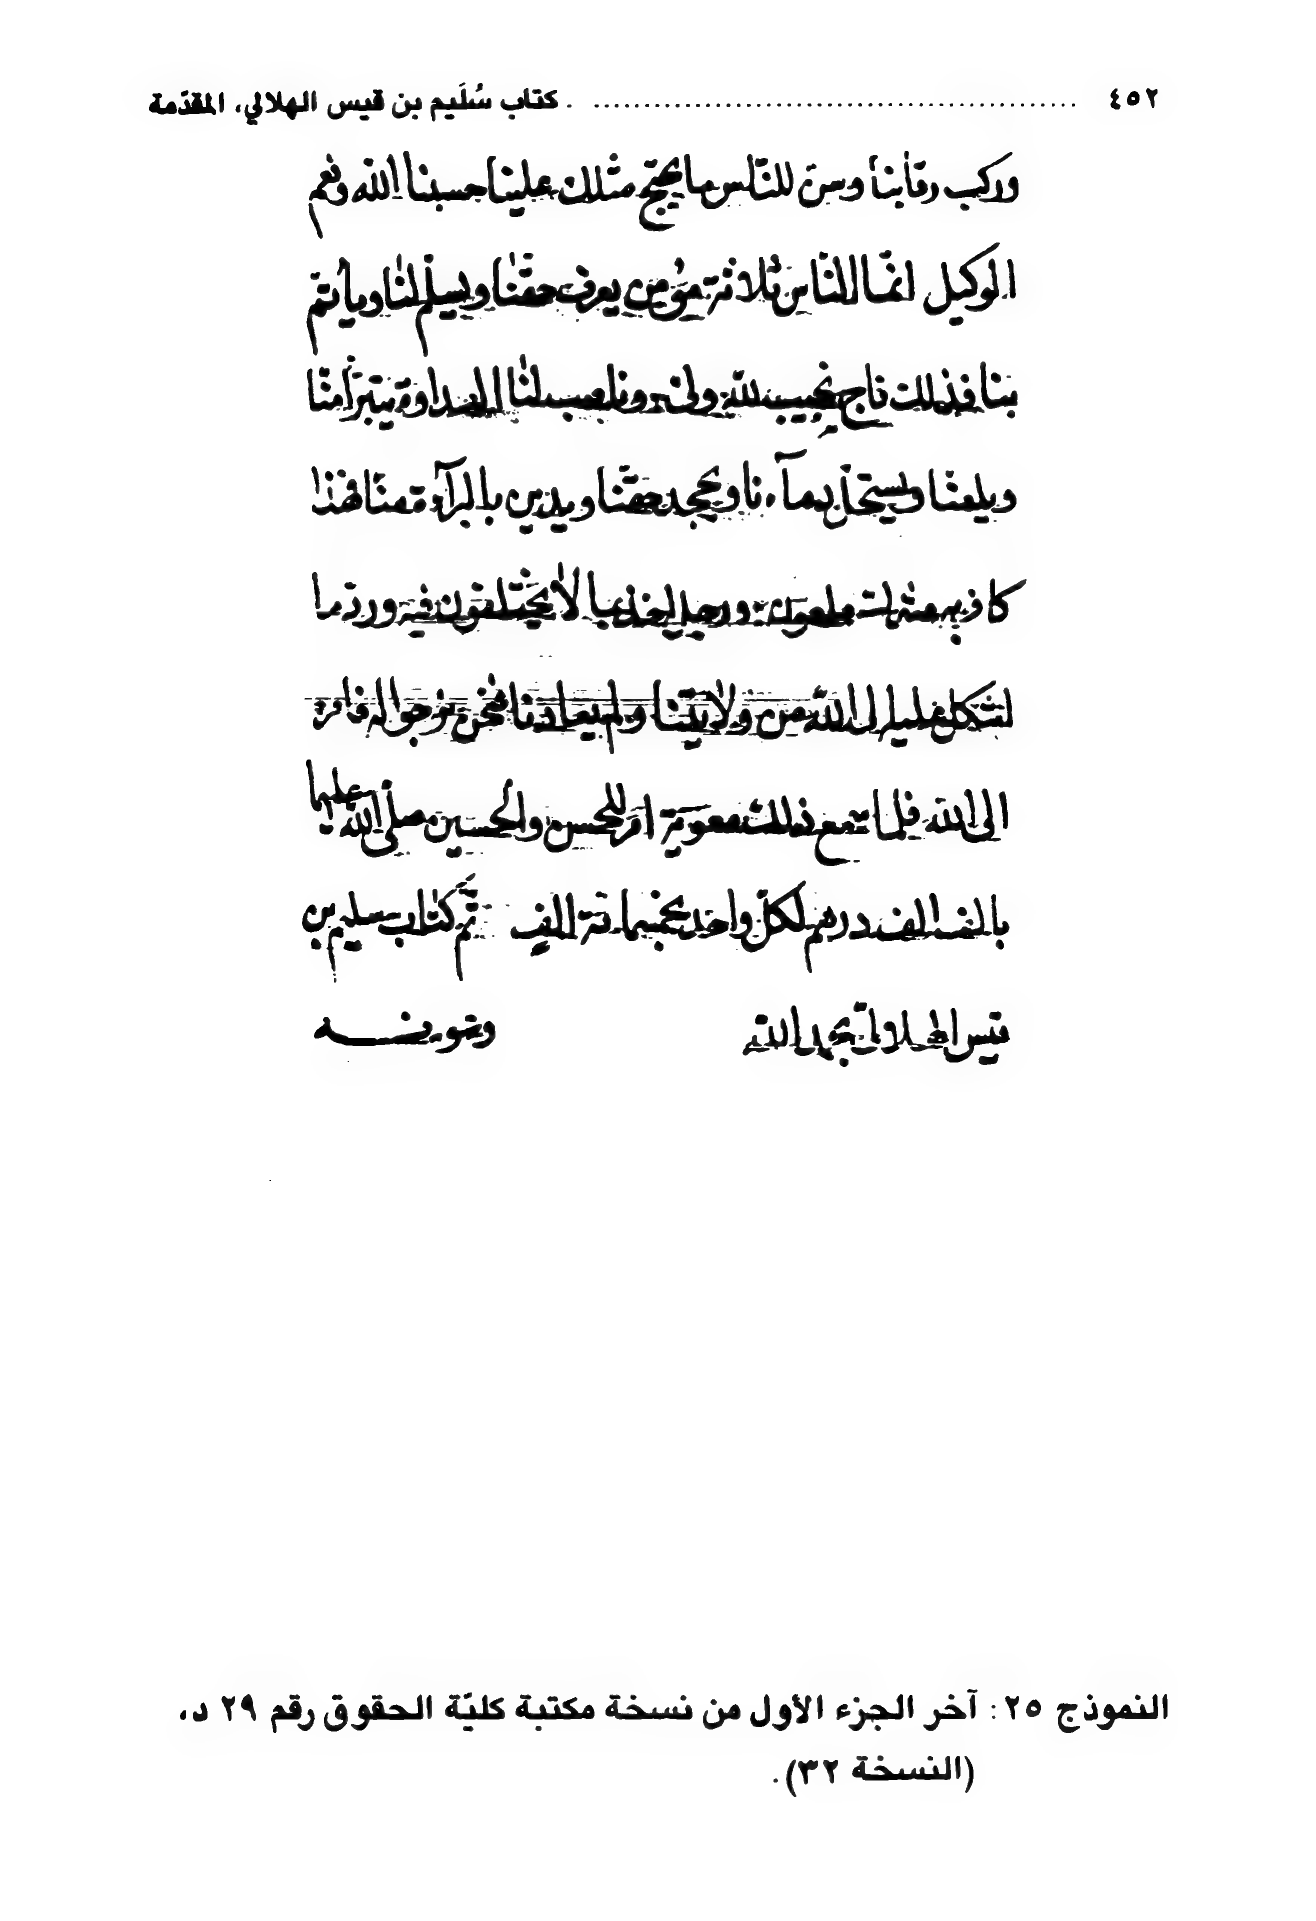 ٤٥٢ ........................ كتاب سُلَيم بن قيس الهلالي، المقدّمة
وركب رقابنا وسن للنّاس ما يحتج مثلك علينا حسبنا الله ونعم
الوكيل انمّا النّاس ثلاثة مؤمن يعرف حقنا ويسلّم لنا وياتم
بنا فذلك ناج نجيب لله ولي وناصب لنا العداوة يتبرأ منّا
ويلعنا ويستحل دمآءنا ويجحد حقنا ويدين بالبرآءة منّا فهذا
كافر به مشرك ملعون ورجل اخذ بما لا يختلفون فيه ورد ما
اشكل عليه الى الله من ولايتنا ولم يعادنا فنحن نرجوا له فامره
الى الله فلما سمع ذلك معوية امر للحسن والحسين صلى الله عليهما
بالف الف درهم لكلّ واحد بخمسمائة الف تمّ كتاب سليم بن
قيس الهلالي بحمد الله وعونه
النموذج ٢٥: آخر الجزء الأول من نسخة مكتبة كليّة الحقوق رقم ٢٩ د،
(النسخة ٣٢).